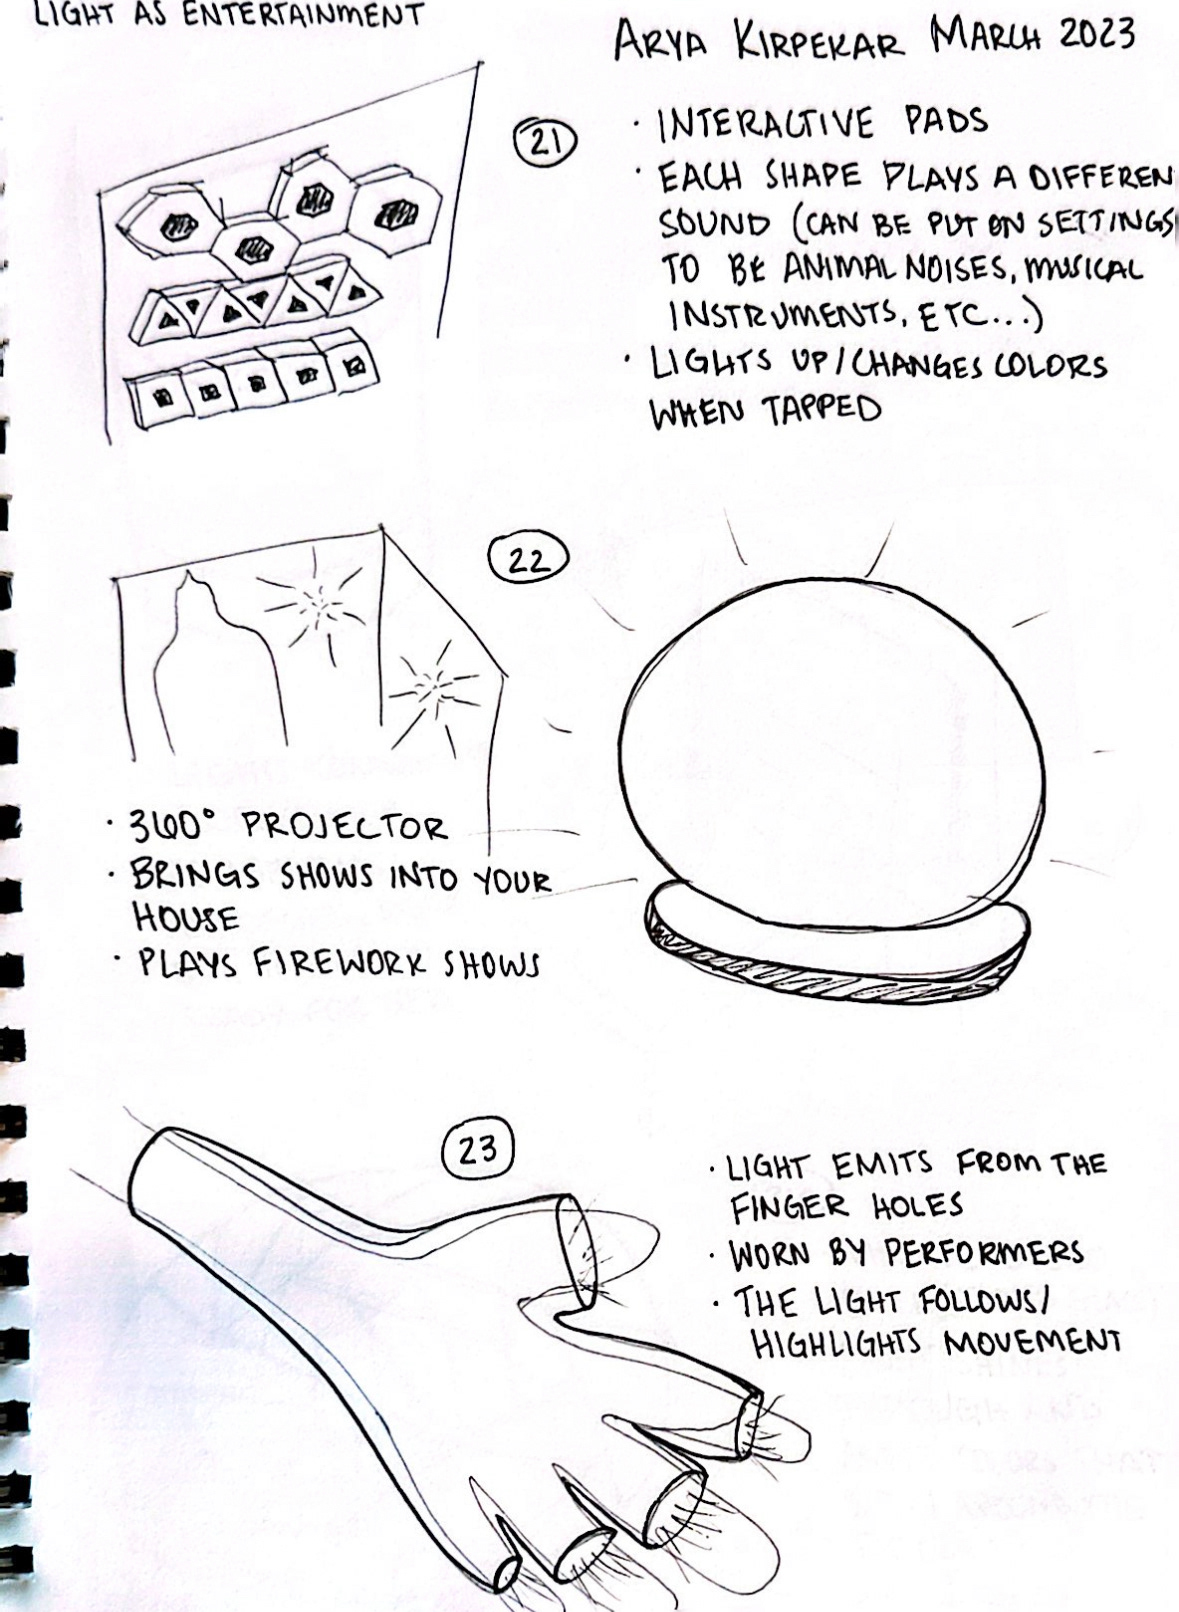 LIGHT AS ENTERTAINMENT
ARYA KIRPEKAR MARCH 2023
21
· INTERACTIVE PADS
· EACH SHAPE PLAYS A DIFFEREN
SOUND (CAN BE PUT ON SETTINGS
TO BE ANIMAL NOISES, MUSICAL
INSTRUMENTS, ETC...)
· LIGHTS UP/CHANGES COLORS
WHEN TAPPED
22
· 360° PROJECTOR
· BRINGS SHOWS INTO YOUR
HOUSE
· PLAYS FIREWORK SHOWS
23
· LIGHT EMITS FROM THE
FINGER HOLES
· WORN BY PERFORMERS
· THE LIGHT FOLLOWS/
HIGHLIGHTS MOVEMENT